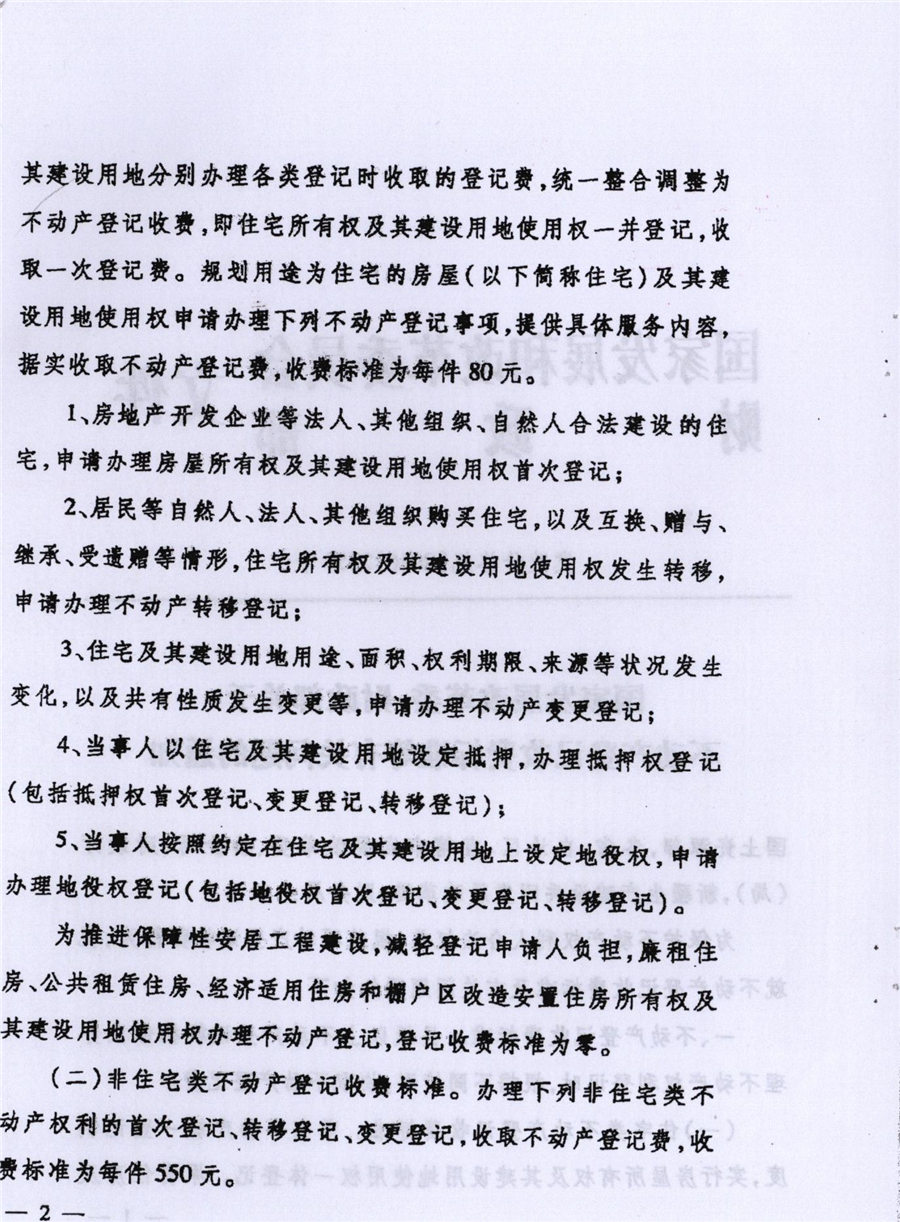 其建设用地分别办理各类登记时收取的登记费,统一整合调整为
不动产登记收费,即住宅所有权及其建设用地使用权一并登记,收
取一次登记费。规划用途为住宅的房屋(以下简称住宅)及其建
设用地使用权申请办理下列不动产登记事项,提供具体服务内容,
据实收取不动产登记费,收费标准为每件80元。
1、房地产开发企业等法人、其他组织、自然人合法建设的住
宅,申请办理房屋所有权及其建设用地使用权首次登记;
2、居民等自然人、法人、其他组织购买住宅,以及互换、赠与、
继承、受遗赠等情形,住宅所有权及其建设用地使用权发生转移,
申请办理不动产转移登记;
3、住宅及其建设用地用途、面积、权利期限、来源等状况发生
变化,以及共有性质发生变更等,申请办理不动产变更登记;
4、当事人以住宅及其建设用地设定抵押,办理抵押权登记
(包括抵押权首次登记、变更登记、转移登记);
5、当事人按照约定在住宅及其建设用地上设定地役权,申请
办理地役权登记(包括地役权首次登记、变更登记、转移登记)。
为推进保障性安居工程建设,减轻登记申请人负担,廉租住
房、公共租赁住房、经济适用住房和棚户区改造安置住房所有权及
其建设用地使用权办理不动产登记,登记收费标准为零。
(二)非住宅类不动产登记收费标准。办理下列非住宅类不
动产权利的首次登记、转移登记、变更登记,收取不动产登记费,收
费标准为每件550元。
— 2 —